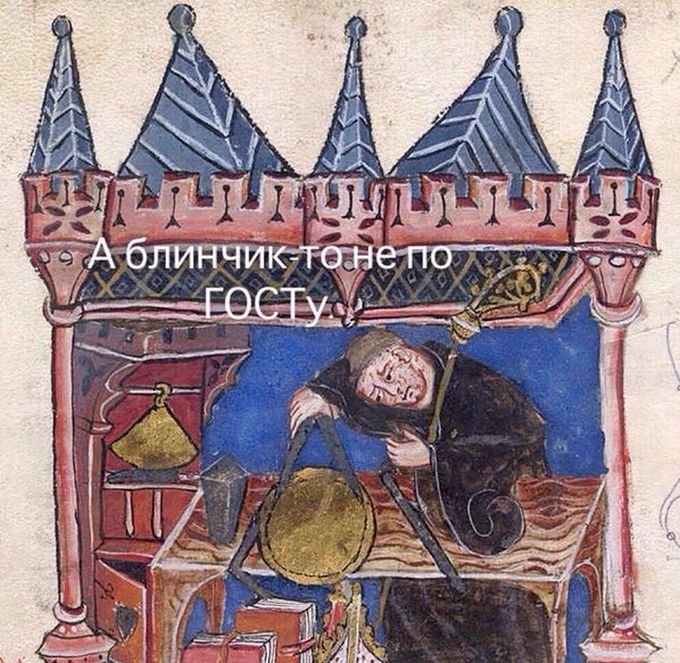 А блинчик-то не по
ГОСТу